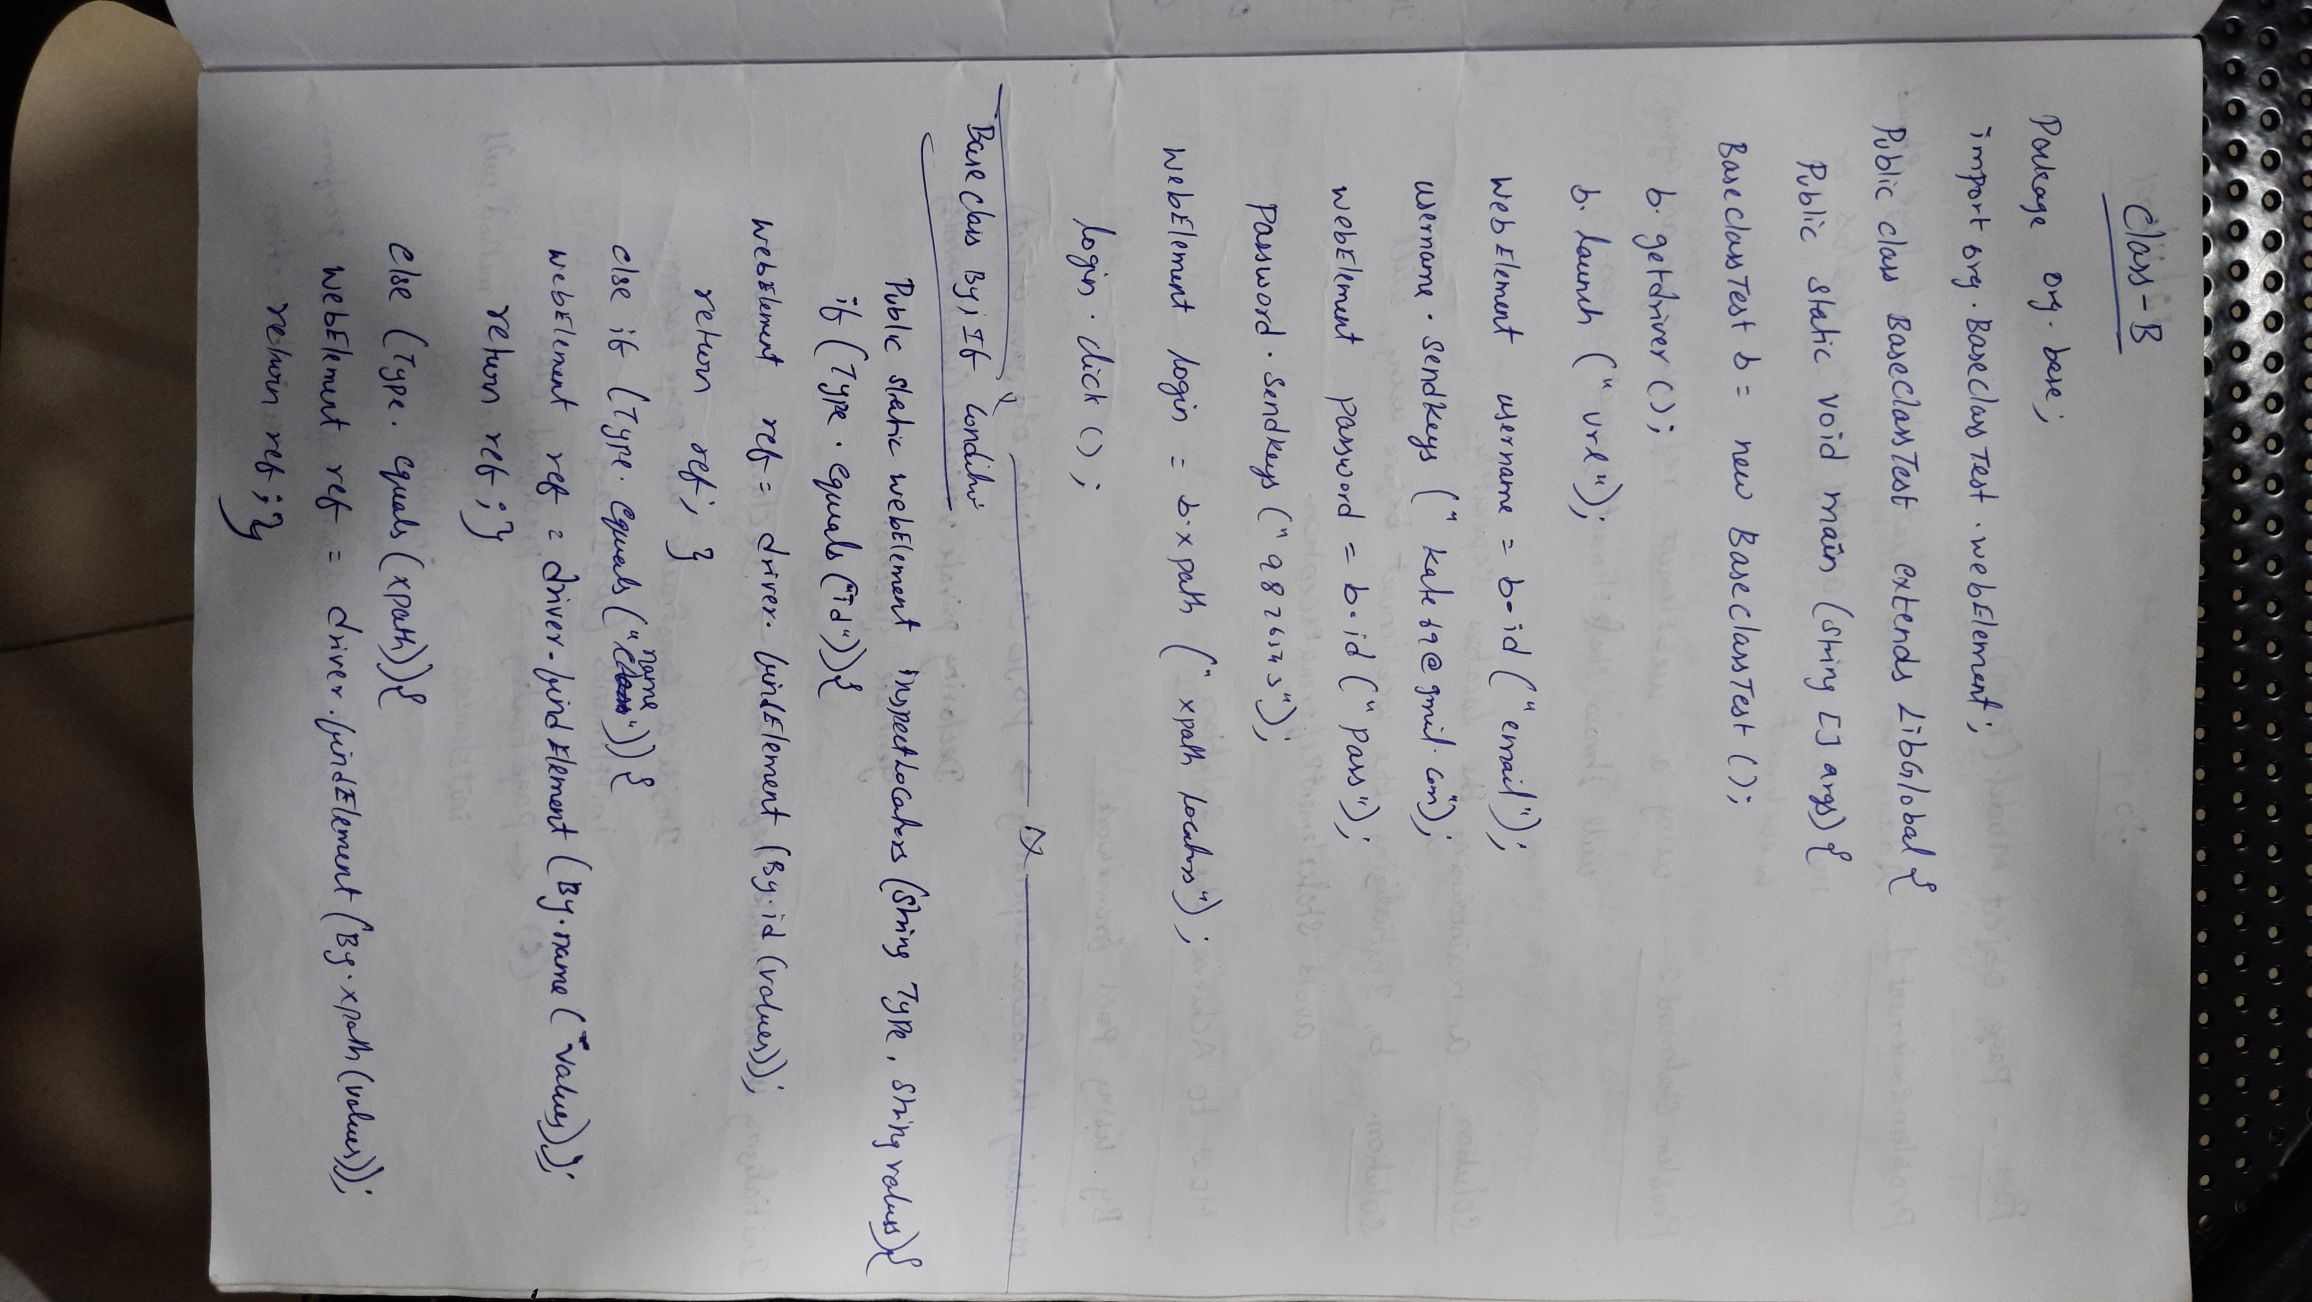 Class-B
Package org.base;
import org.BaseclassTest.webElement;
Public class BaseclassTest extends LibGlobal {
Public static void main (String [] args) {
BaseclassTest b = new BaseclassTest ();
b.getdriver ();
b.launch ("url");
WebElement username = b.id ("email");
username.sendkeys ("kate69@gmail.com");
webElement password = b.id ("pass");
Password.sendkeys ("9876543");
WebElement login = b.xpath ("xpath locators");
login.click ();
Base class By, If Condition
Public static webElement inspectLocators (String Type, String values) {
if (Type.equals ("id")) {
WebElement ref = driver.findElement (By.id (values));
return ref; }
else if (Type.equals ("name")) {
WebElement ref = driver.findElement (By.name (values));
return ref; }
else (Type.equals (xpath)) {
WebElement ref = driver.findElement (By.xpath (values));
return ref; }